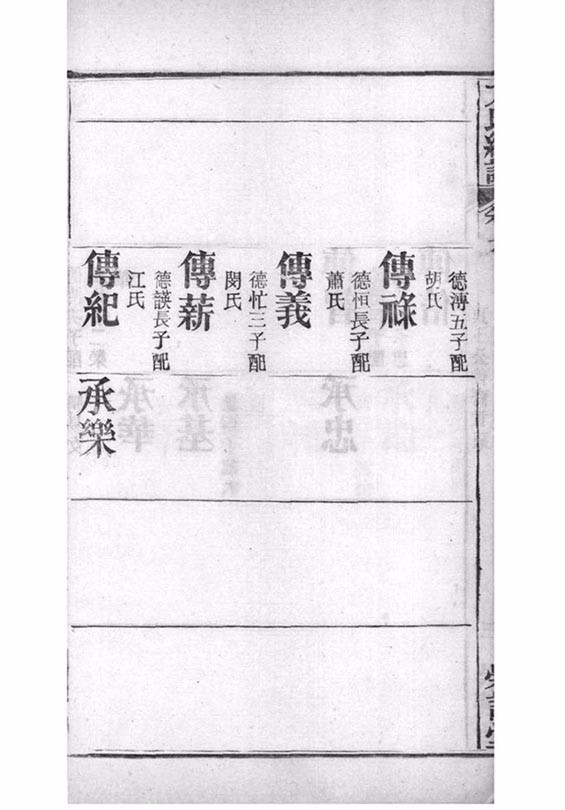 德溥五子配
胡氏
傳祿
德恒長子配
蕭氏
傳義
德忙三子配
閔氏
傳薪
長子配
江氏
傳紀
承樂